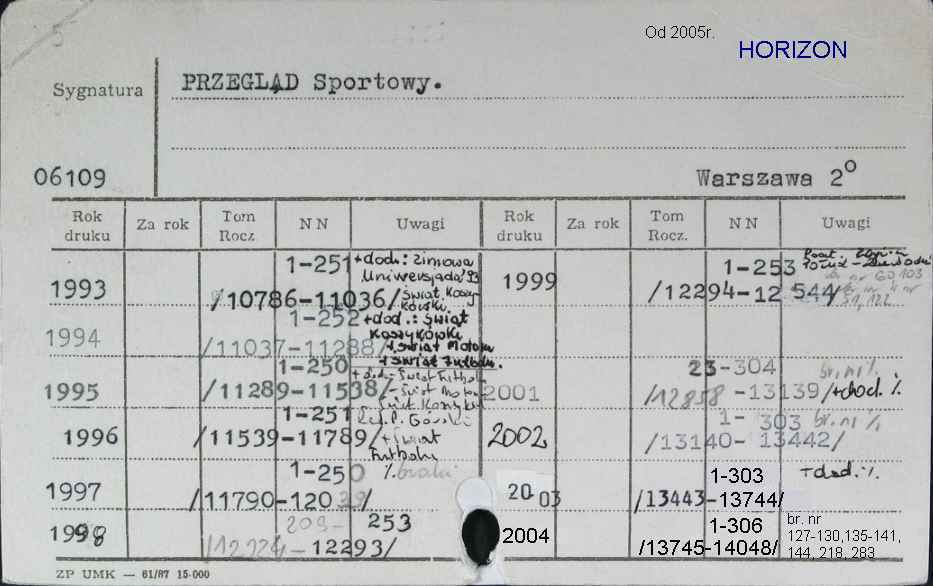 Od 2005r.
HORIZON
Sygnatura
PRZEGLĄD Sportowy.
06109
Warszawa 2°
Rok druku Za rok Tom Rocz NN Uwagi Rok druku Za rok Tom Rocz. NN Uwagi
1993 1-251 +dod.: Zimowa
Uniwersjada '93
/10786-11036/ Świat Koszy-
kówki.
1999 1-253
/12294-12 544/
1994 1-252 +dod.: Świat
Koszykówki
/11037-11288/ +Świat Motoru
+Świat Futbolu.
1995 1-250
/11289-11538/
2001 23-304 br. nr %
/12858-13139/ +dod. %
1996 1-251
/11539-11789/ +Świat
Futbolu
2002 1-303 br. nr %
/13140-13442/
1997 1-250 % braki
/11790-12039/
2003 1-303 +dod. %
/13443-13744/
1998 209-253
-12293/
2004 1-306 br. nr
/13745-14048/ 127-130,135-141,
144, 218, 283
ZP UMK — 61/87 15·000